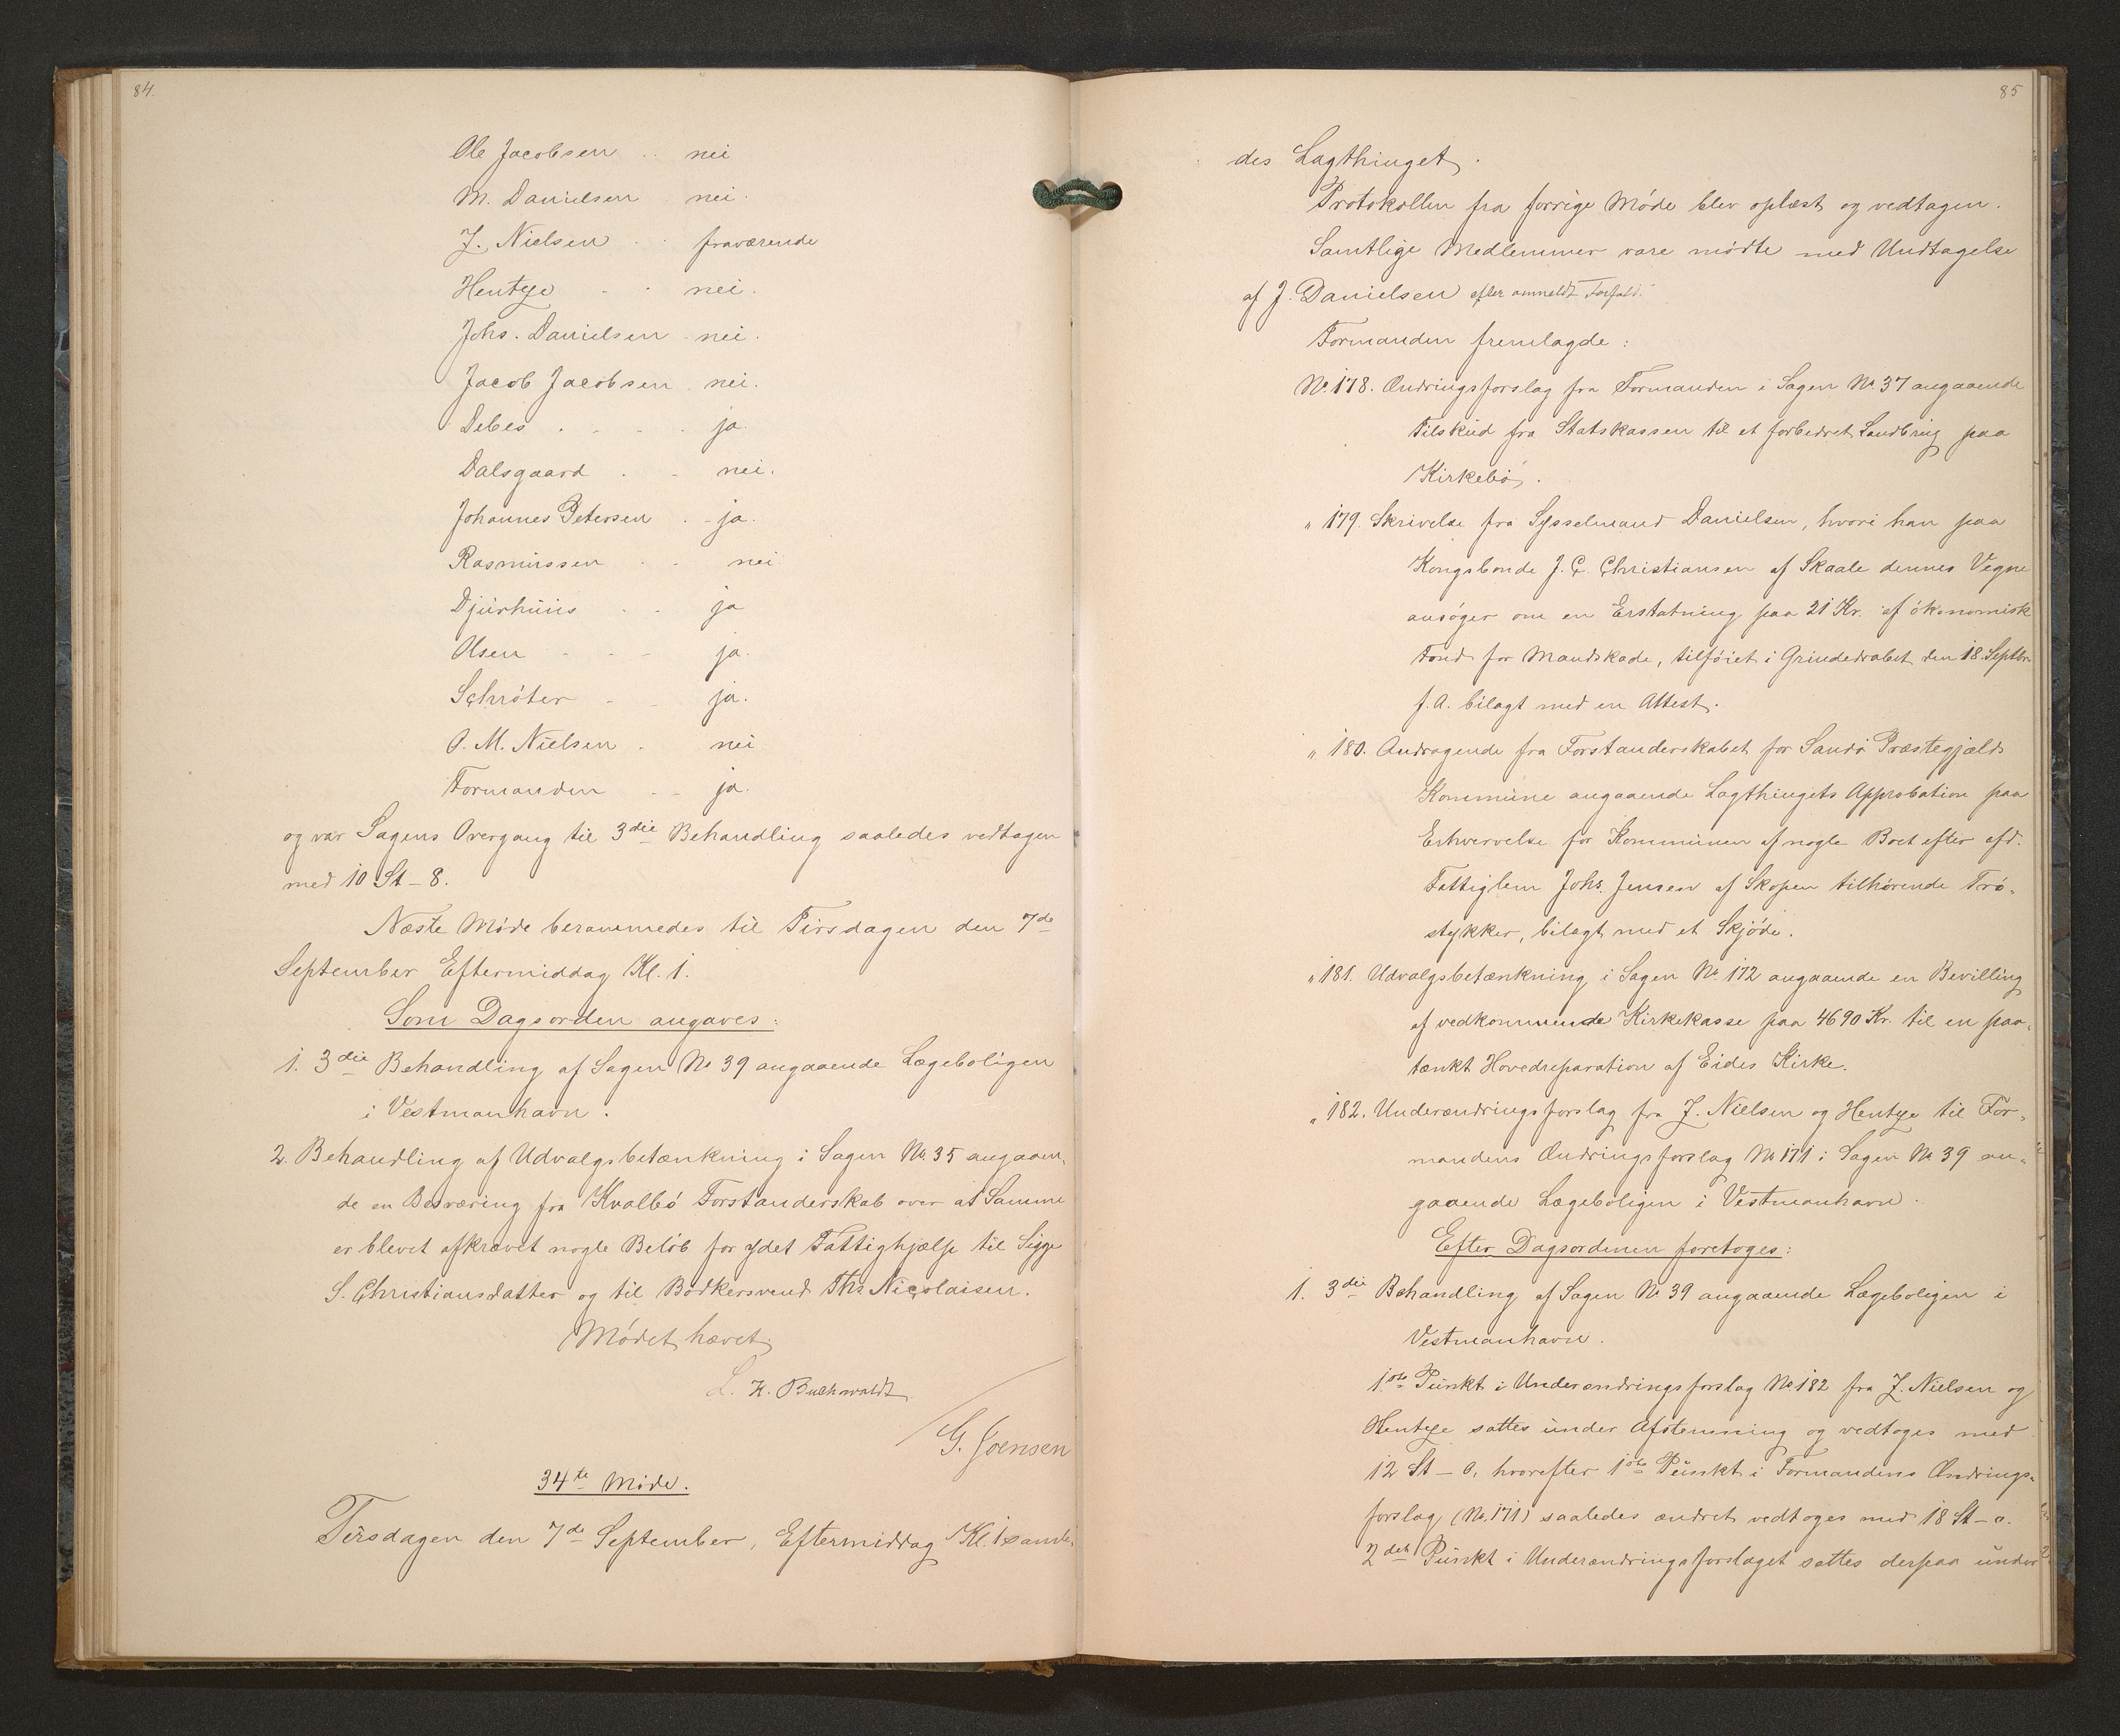 84.
Ole Jacobsen .. nei
M. Danielsen nei.
Z. Nielsen . . fraværende
Hentze . . nei.
Johs. Danielsen nei.
Jacob Jacobsen nei.
Debes . . . . ja.
Dalsgaard . . nei.
Johannes Petersen . . ja.
Rasmussen . . nei
Djurhuus . . ja
Olsen - - - ja.
Schrøter - - ja.
O. M. Nielsen . nei
Formanden - - ja.
og var Sagens Overgang til 3die Behandling saaledes vedtagen
med 10 St - 8.
Næste Møde berammedes til Tirsdagen den 7de
September Eftermiddag Kl. 1.
Som Dagsorden angaves:
1. 3die Behandling af Sagen No 39 angaaende Lægeboligen
i Vestmanhavn.
2. Behandling af Udvalgsbetænkning i Sagen No. 35 angaaen-
de en Besværing fra Kvalbø Forstanderskab over at Samme
er blevet afkrævet nogle Beløb for ydet Fattighjælp til Sigge
S. Christiansdatter og til Bødkersvend Ths Nicolaisen.
Mødet hævet
L. K. Buchwaldt
G. Joensen
34te Møde.
Tirsdagen den 7de September, Eftermiddag Kl. 1 samle-
85
des Lagthinget.
Protokollen fra forrige Møde blev oplæst og vedtagen.
Samtlige Medlemmer vare mødte med Undtagelse
af J. Danielsen efter anmeldt Forfald.
Formanden fremlagde:
No. 178. Ændringsforslag fra Formanden i Sagen No. 37 angaaende
Tilskud fra Statskassen til et forbedret Landbrug paa
Kirkebø.
" 179. Skrivelse fra Sysselmand Danielsen, hvori han paa
Kongsbonde J. C. Christiansen af Skaale dennes Vegne
ansøger om en Erstatning paa 21 Kr. af økonomisk
Fond for Mandskade, tilføiet i Grindedrabet den 18. Septbr
f. A. bilagt med en Attest.
" 180. Andragende fra Forstanderskabet for Sandø Præstegjælds
Kommune angaaende Lagthingets Approbation paa
Erhvervelse for Kommunen af nogle Boet efter afd.
Fattiglem Johs. Jensen af Skopen tilhørende Trø-
stykker, bilagt med et Skjøde.
" 181. Udvalgsbetænkning i Sagen No. 172 angaaende en Bevilling
af vedkommende Kirkekasse paa 4690 Kr. til en paa-
tænkt Hovedreparation af Eides Kirke.
" 182. Underændringsforslag fra Z. Nielsen og Hentze til For-
mandens Ændringsforslag No 171 i Sagen No. 39 an-
gaaende Lægeboligen i Vestmanhavn.
Efter Dagsordenen foretoges:
1. 3die Behandling af Sagen No 39 angaaende Lægeboligen i
Vestmanhavn.
1ste Punkt i Underændringsforslag No 182 fra Z. Nielsen og
Hentze sattes under Afstemning og vedtoges med
12 St - 0, hvorefter 1ste Punkt i Formandens Ændrings-
forslag (No. 171) saaledes ændret vedtoges med 18 St - 0.
2det Punkt i Underændringsforslaget sattes derpaa under